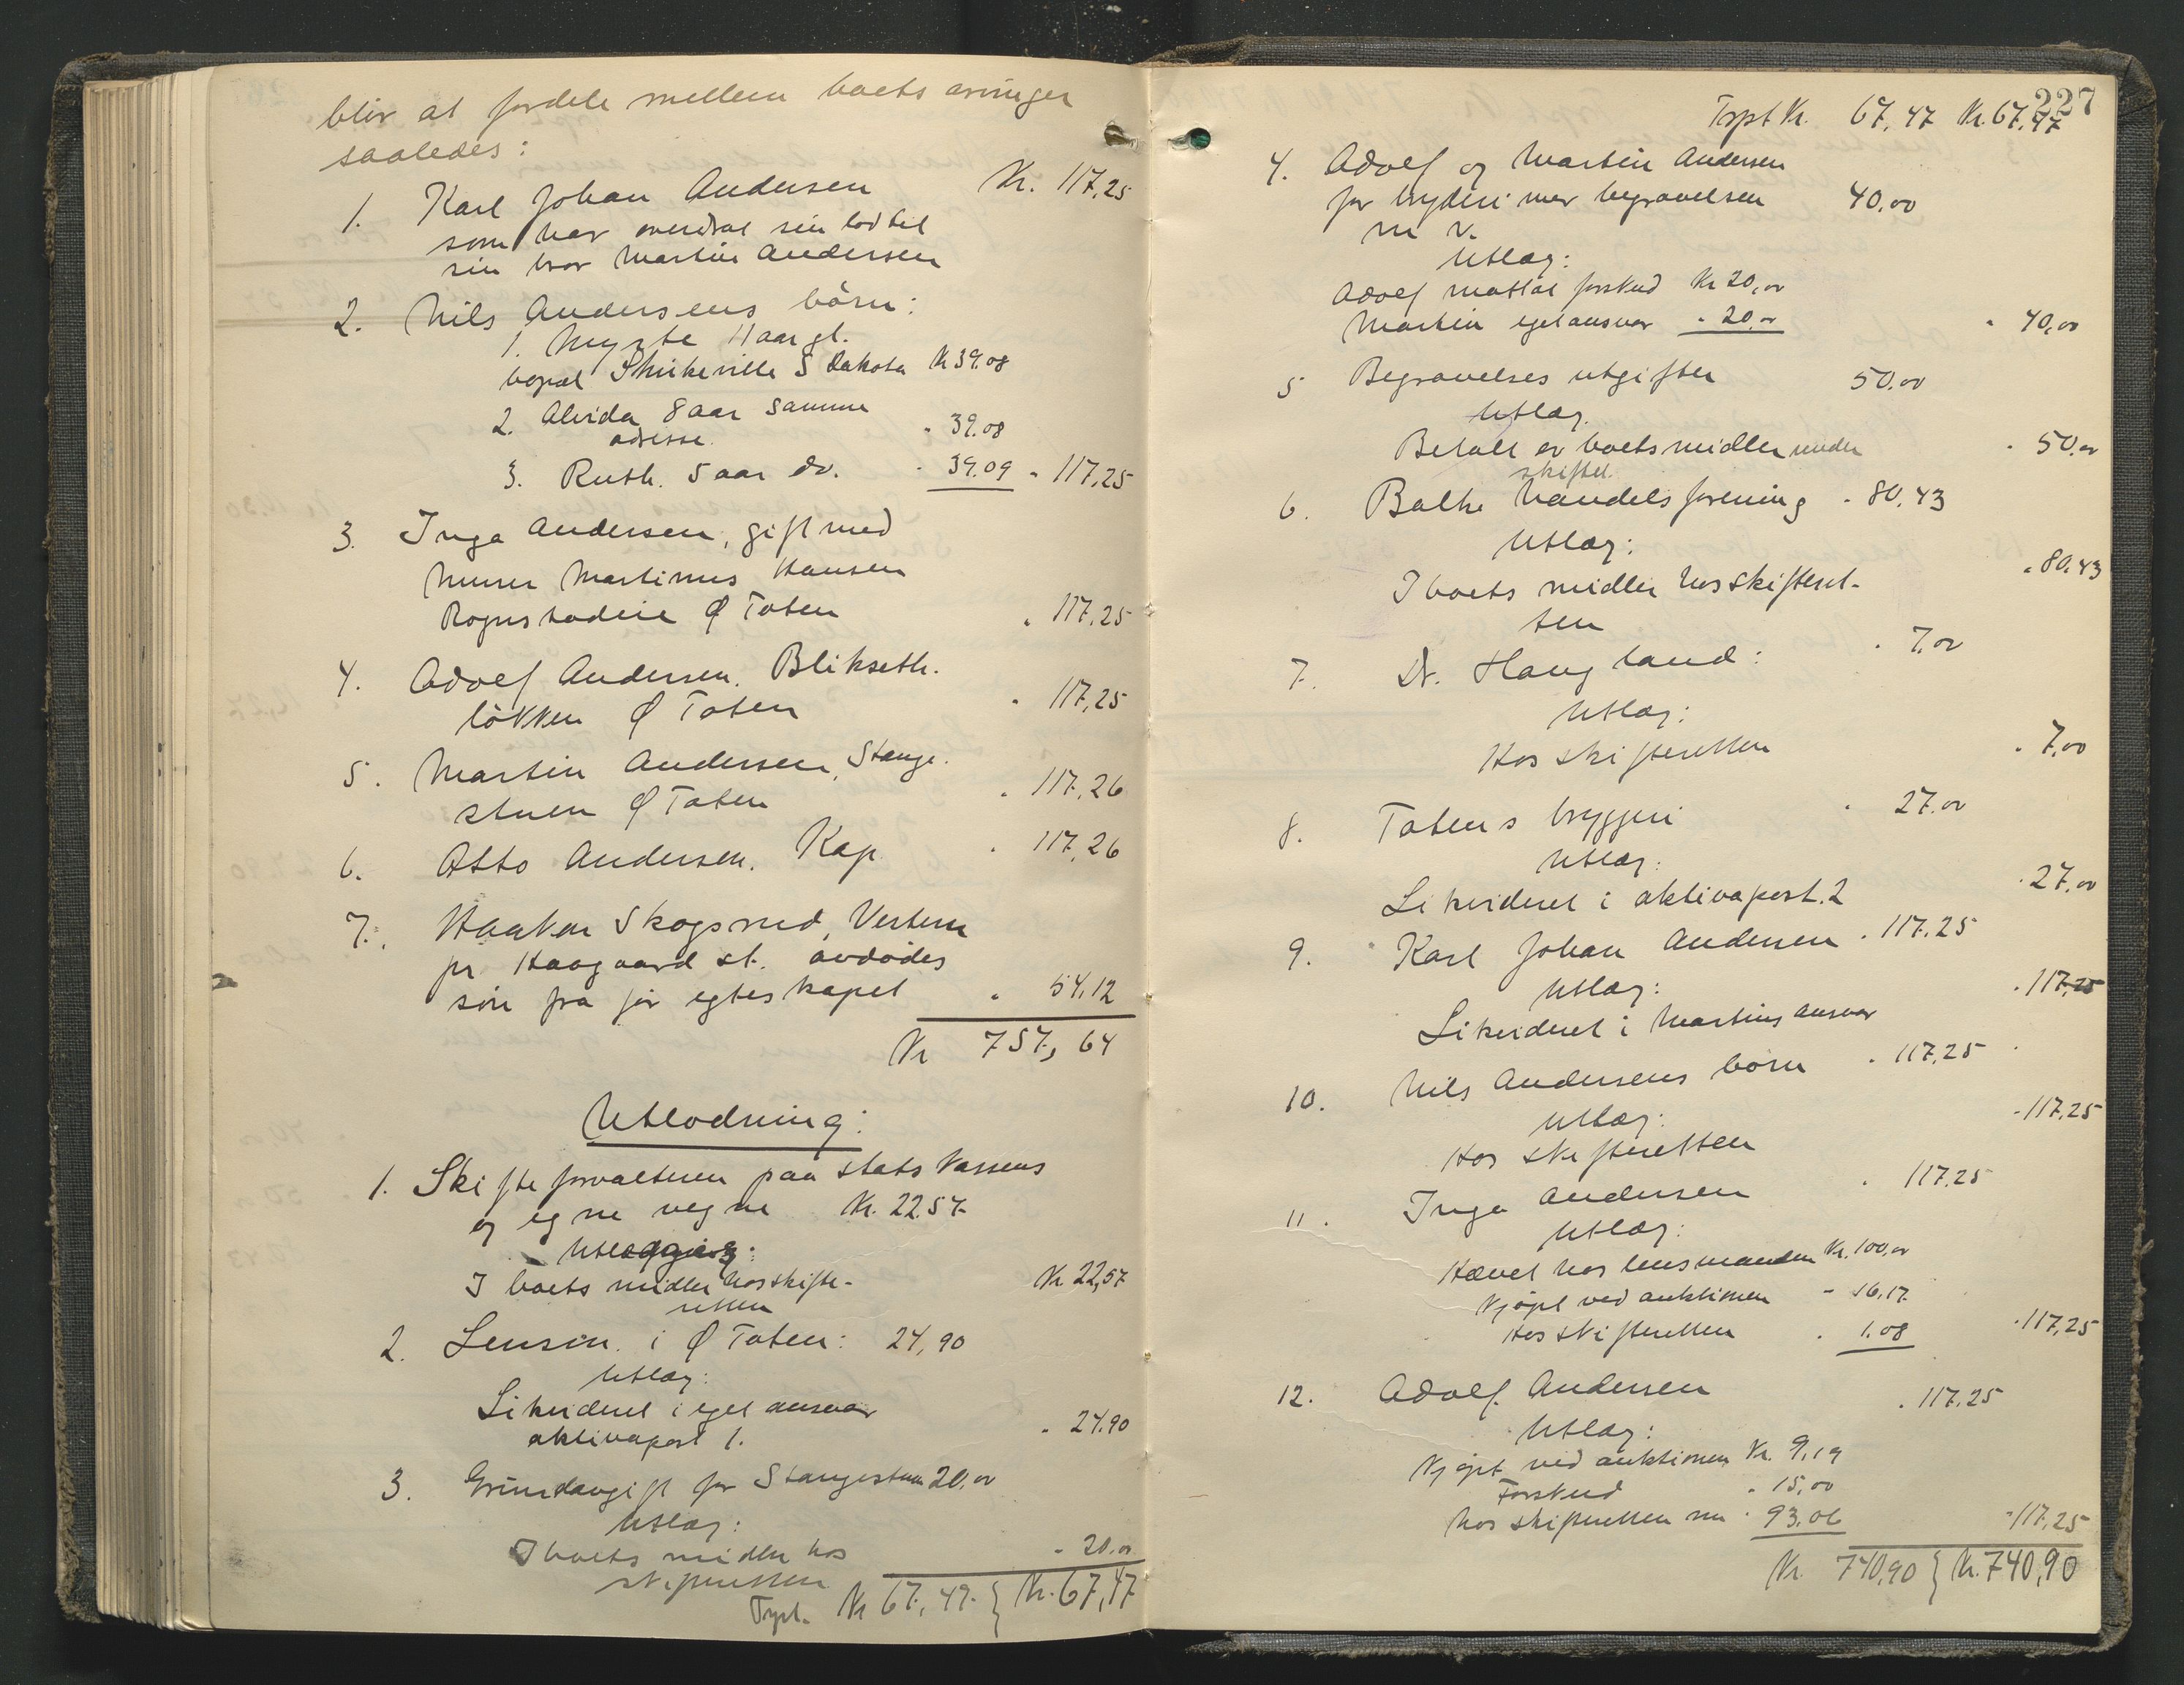 blir at fordele mellem boets arvinger
saaledes:
1. Karl Johan Andersen Kr. 117,25
som har overdrat sin lod til
sin bror Martin Andersen
2. Nils Andersens börn:
1. Myrte 11 aar gl.
bopæl S Dakota Kr 39.08
2. Alvida 8 aar samme
adresse. " 39.08
3. Ruth. 5 aar do. " 39.09 " 117,25
3. Inga Andersen, gift med
murer Martinus Hansen
Rognstadeie Ø Toten " 117,25
4. Adolf Andersen, Blikseth.
løkken Ø Toten " 117,25
5. Martin Andersen, Stange.
stuen Ø Toten " 117,26
6. Otto Andersen. Kap " 117,26
7. Haakon Skogsrud, Vestern
pr. Haagaard st. avdødes
søn fra før egteskapet " 54,12
Kr 757,64
Utlodning:
1. Skifteforvalteren paa statskassens
og egne vegne Kr. 22.57
Utlæg:
I boets midler hos skifte-
retten Kr 22,57
2. Lensm. i Ø Toten: 24,90
Utlæg:
Likvideret i eget ansvar
aktivapost 1. " 24.90
3. Grundavgift for Stangestuen 20,00
Utlæg:
I boets midler hos
skifteretten " 20.00
Trpt. Kr 67,47. } Kr. 67,47
227
Trpt Kr. 67,47 Kr. 67,47
4. Adolf og Martin Andersen
for bryderi med begravelsen 40,00
m v.
Utlæg:
Adolf mottat forskud Kr 20,00
Martin eget ansvar " 20.00 " 40,00
5 Begravelses utgifter 50.00
Utlæg.
Betalt av boets midler under
skiftet. " 50.00
6. Balke Handelsforening " 80,43
Utlæg:
I boets midler hos skifteret-
ten " 80.43
7. Dr. Haugland: " 7,00
Utlæg:
Hos skifteretten " 7,00
8. Totens bryggeri " 27.00
Utlæg:
Likvideret i aktivapost. 2 " 27,00
9. Karl Johan Andersen " 117.25
Utlæg:
Likvideret i Martins ansvar " 117,25
10. Nils Andersens børn " 117,25
Utlæg:
Hos skifteretten " 117,25
11. Inga Andersen " 117.25
Utlæg:
Hævet hos lensmanden Kr. 100,00
Kjøpt ved auktionen " 16,17
Hos skifteretten " 1.08 " 117,25
12. Adolf Andersen " 117,25
Utlæg:
Kjøpt ved auktionen Kr. 9,19
Forskud " 15,00
hos skifteretten nu " 93.06 " 117,25
Kr. 740,90 } Kr. 740,90